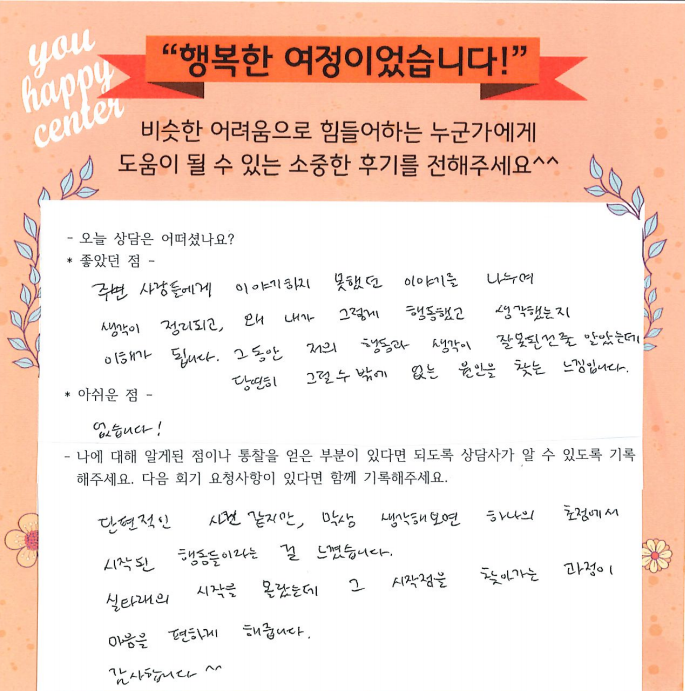 you
happy
center
“행복한 여정이었습니다!”
비슷한 어려움으로 힘들어하는 누군가에게
도움이 될 수 있는 소중한 후기를 전해주세요^^
- 오늘 상담은 어떠셨나요?
* 좋았던 점 -
주변 사람들에게 이야기하지 못했던 이야기를 나누며
생각이 정리되고, 왜 내가 그렇게 행동했고 생각했는지
이해가 됩니다. 그동안 저의 행동과 생각이 잘못된건줄 알았는데
당연히 그럴 수 밖에 없는 원인을 찾는 느낌입니다.
* 아쉬운 점 -
없습니다!
- 나에 대해 알게된 점이나 통찰을 얻은 부분이 있다면 되도록 상담사가 알 수 있도록 기록
해주세요. 다음 회기 요청사항이 있다면 함께 기록해주세요.
단편적인 사건 같지만, 막상 생각해보면 하나의 초점에서
시작된 행동들이라는 걸 느꼈습니다.
실타래의 시작을 몰랐는데 그 시작점을 찾아가는 과정이
마음을 편하게 해줍니다.
감사합니다 ^^